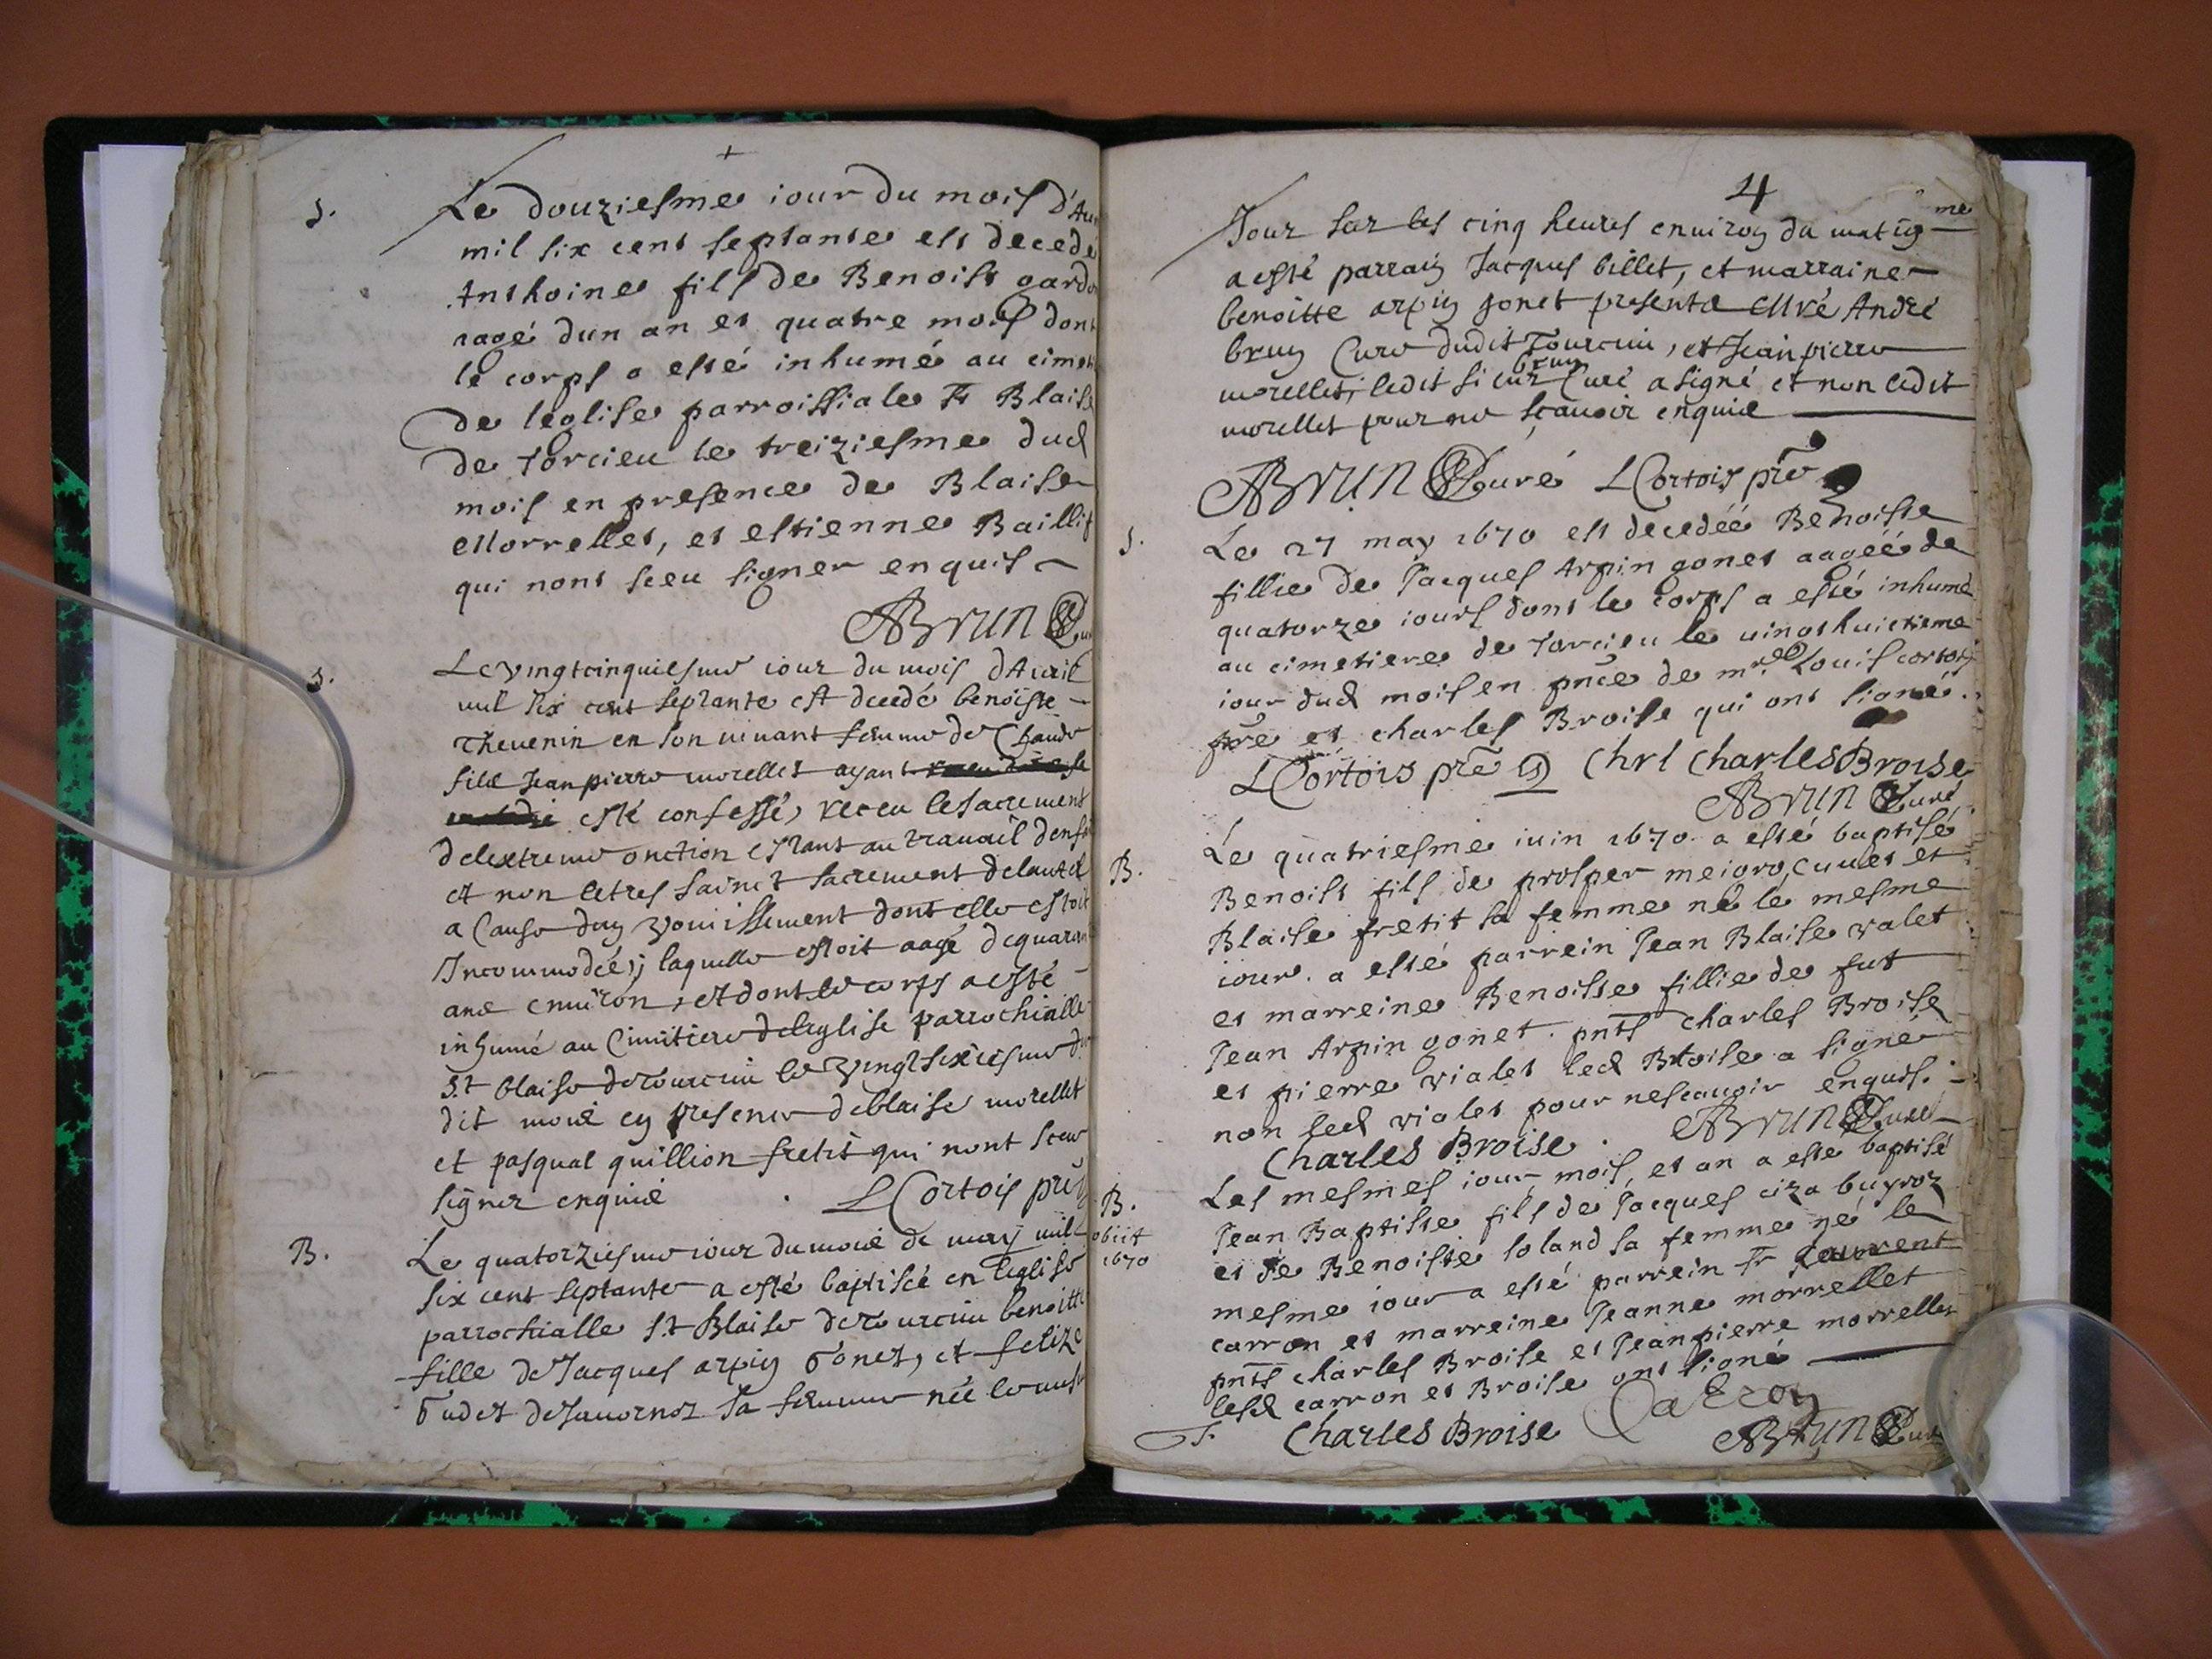 +
S.
Le douziesme iour du mois d'Au
mil six cens septante est decedé
Anthoine fils de Benoist gardo
aagé dun an et quatre mois dont
le corps a esté inhumé au cimeti
de leglise parroissiale St Blaise
de Torcieu le treiziesme dud
mois en presence de Blaise
Morrellet, et estienne Baillif
qui nont sceu signer enquis
ABrun Cu
S.
Le vingtcinquiesme iour du mois dAuril
mil six cent septante est decedé benoiste
Thevenin en son uiuant femme de Claude
filz Jean pierre morellet ayant
esté confessé, receu le sacrement
delextreme onction estant au trauail denf
et non le tres sainct sacrement delautel
a Cause dun vomissement dont elle estoit
Incommodée, laquelle estoit aagé dequaran
ans enuiron, et dont le corps a esté
inhumé au Cimitiere deleglise parrochialle
S.t blaise de Tourcieu le vingtsixiesme du
dit mois en presence deblaise morellet
et pasqual quillion fretit qui nont sceu
signer enquis
L Cortois pr
B.
Le quatorziesme iour du mois de may mil
six cent septante a esté baptisée en leglise
parrochialle S.t Blaise de Tourcieu benoitte
fille de Jacques arpin Gonet, et
sa femme née le mes
4
me
Jour sur les cinq heures enuiron du matin
a esté parrain Jacques billet, et marraine
benoitte arpin gonet presents Mre André
brun Curé dudit Tourcieu, et Jean pierre
brun
morellet, ledit sieur Curé a signé et non ledit
morellet pour ne sçauoir enquis
ABrun Curé L Cortois pre
S.
Le 27 may 1670 est decedéé Benoiste
fillie de Jacques Arpin gonet aagéé de
quatorze iours dont le corps a esté inhumé
au cimetiere de Torcieu le uingthuictieme
iour dud mois en pnce de mre Louis cortois
pre et charles Broise qui ont signé.
L Cortois pre Chrl Charles Broise
ABrun Curé
B.
Le quatriesme iuin 1670 a esté baptisé
Benoist fils de prosper meigro, cuuet et
Blaise fretit sa femme né le mesme
iour. a esté parrein Jean Blaise valet
et marreine Benoisse fillie de fut
Jean Arpin gonet. pnts Charles Broise
et pierre vialet led Broise a signé
non led vialet pour nescauoir enquis.
Charles Broise. ABrun Curé
B.
obiit
1670
Les mesmes iour, mois, et an a esté baptisé
Jean Baptiste fils de Jacques ciza buyroz
et de Benoiste soland sa femme né le
mesme iour a esté parrein Sr Laurent
carron et marreine Jeanne morrellet
pnts charles Broise et Jeanpierre morrellet
lesd carron et Broise ont signé
Charles Broise CaRon
ABrun Curé